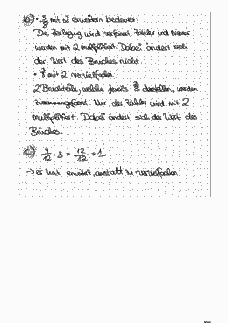 • 3/8 mit 2 erweitern bedeutet:
Die Zerlegung wird verfeinert. Zähler und Nenner
werden mit 2 multipliziert. Dabei ändert sich
der Wert des Bruches nicht.
• 3/8 mit 2 vervielfachen
2 Bruchteile, welche jeweils 3/8 darstellen, werden
zusammengefasst. Nur der Zähler wird mit 2
multipliziert. Dabei ändert sich der Wert des
Bruches.
4/12 · 3 = 12/12 = 1
→ es wird erweitert, anstatt zu vervielfachen